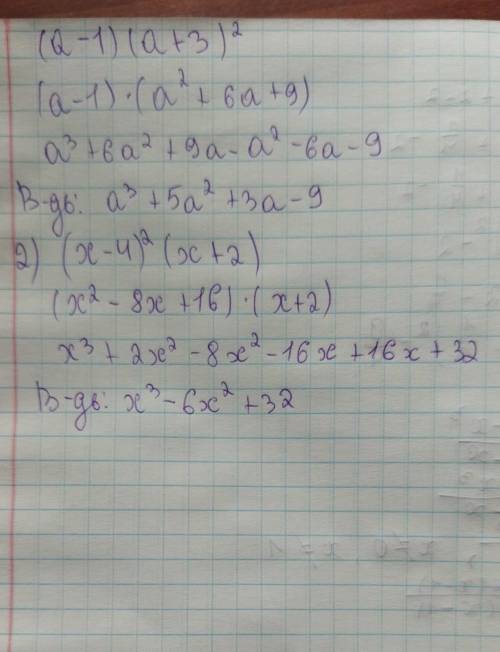 (a-1)(a+3)²
(a-1)·(a²+6a+9)
a³+6a²+9a-a²-6a-9
В-дь: a³+5a²+3a-9
2) (x-4)²(x+2)
(x²-8x+16)·(x+2)
x³+2x²-8x²-16x+16x+32
В-дь: x³-6x²+32